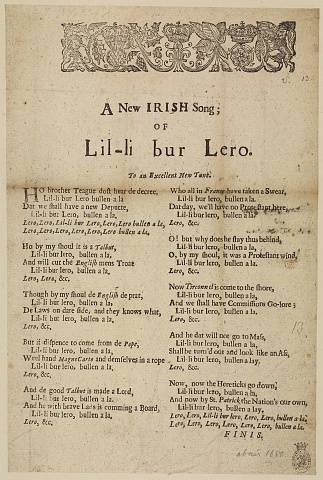 A New IRISH Song;
OF
Lil-li bur Lero.
To an Excellent New Tune.
HO brother Teague dost hear de decree,
Lil-li bur Lero bullen a la
Dat we shall have a new Depute,
Lil-li bur Lero, bullen a la,
Lero, Lero, Lil-li bur Lero, Lero, Lero bullen a la,
Lero, Lero, Lero, Lero, Lero, Lero bullen a la,
Ho by my shoul it is a Talbut,
Lil-li bur lero, bullen a la,
And will cut de English mens Troat
Lil-li bur lero, bullen a la,
Lero, Lero, &c.
Though by my shoul de English de prat,
Lil-li bur lero, bullen a la,
De Laws on dare side, and they knows what,
Lil-li bur lero, bullen a la,
Lero, &c.
But if dispence to come from de Pope,
Lil-li bur lero, bullen a la,
Weel hand Magna Carta and demselves in a rope
Lil-li bur lero, bullen a lay,
Lero, &c.
And de good Talbut is made a Lord,
Lil-li bur lero, bullen a la,
And he with brave Lads is comming a Board,
Lil-li bur lero, bullen a la,
Lero, &c.
Who all in France have taken a Swear,
Lil-li bur lero, bullen a la,
Dat day, we'll have no Protestant here,
Lil-li bur lero, bullen a la,
Lero, &c.
O! but why does he stay thus behind,
Lil-li bur lero, bullen a la,
O, by my shoul, it was a Protestant wind,
Lil-li bur lero, bullen a la,
Lero, &c.
Now Tirconnel is come to the shore,
Lil-li bur lero, bullen a la,
And we shall have Commissions Go-lore;
Lil-li bur lero, bullen a la,
Lero, &c.
And he dat will not go to Mass,
Lil-li bur lero, bullen a la,
Shall be turn'd out and look like an Ass,
Lil-li bur lero, bullen a lay,
Lero, &c.
Now, now the Hereticks go down,
Lil-li bur lero, bullen a la,
And now by St. Patrick the Nation's our own,
Lil-li bur lero, bullen a lay,
Lero, Lero, Lil-li bur lero, Lero, Lero, bullen a la,
Lero, Lero, Lero, Lero, Lero, Lero, bullen a la.
FINIS.